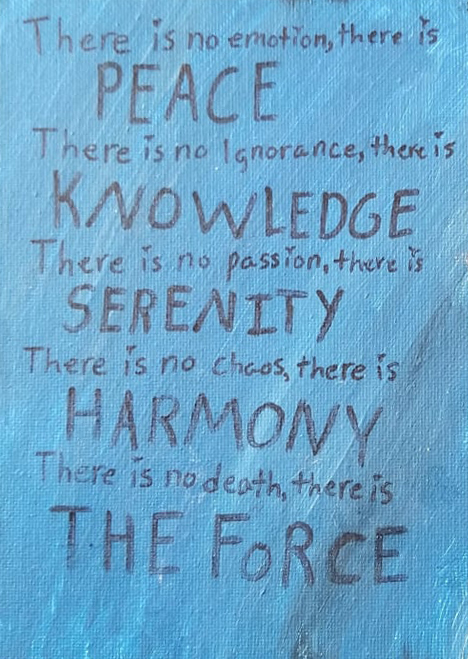 There is no emotion, there is
PEACE
There is no Ignorance, there is
KNOWLEDGE
There is no passion, there is
SERENITY
There is no chaos, there is
HARMONY
There is no death, there is
THE FoRCE